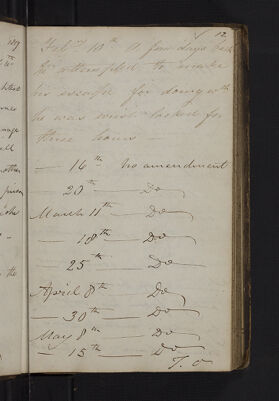 12
Feb.y 10th A few days back
he attempted to make
his escape for doing wh
he was wrist locked for
three hours
— 16th no amendment
— 20th — Do
March 11th — Do
— 18th — Do
— 25th — Do
April 8th Do
— 30th — Do
May 8th — Do
— 15th — Do
T. O